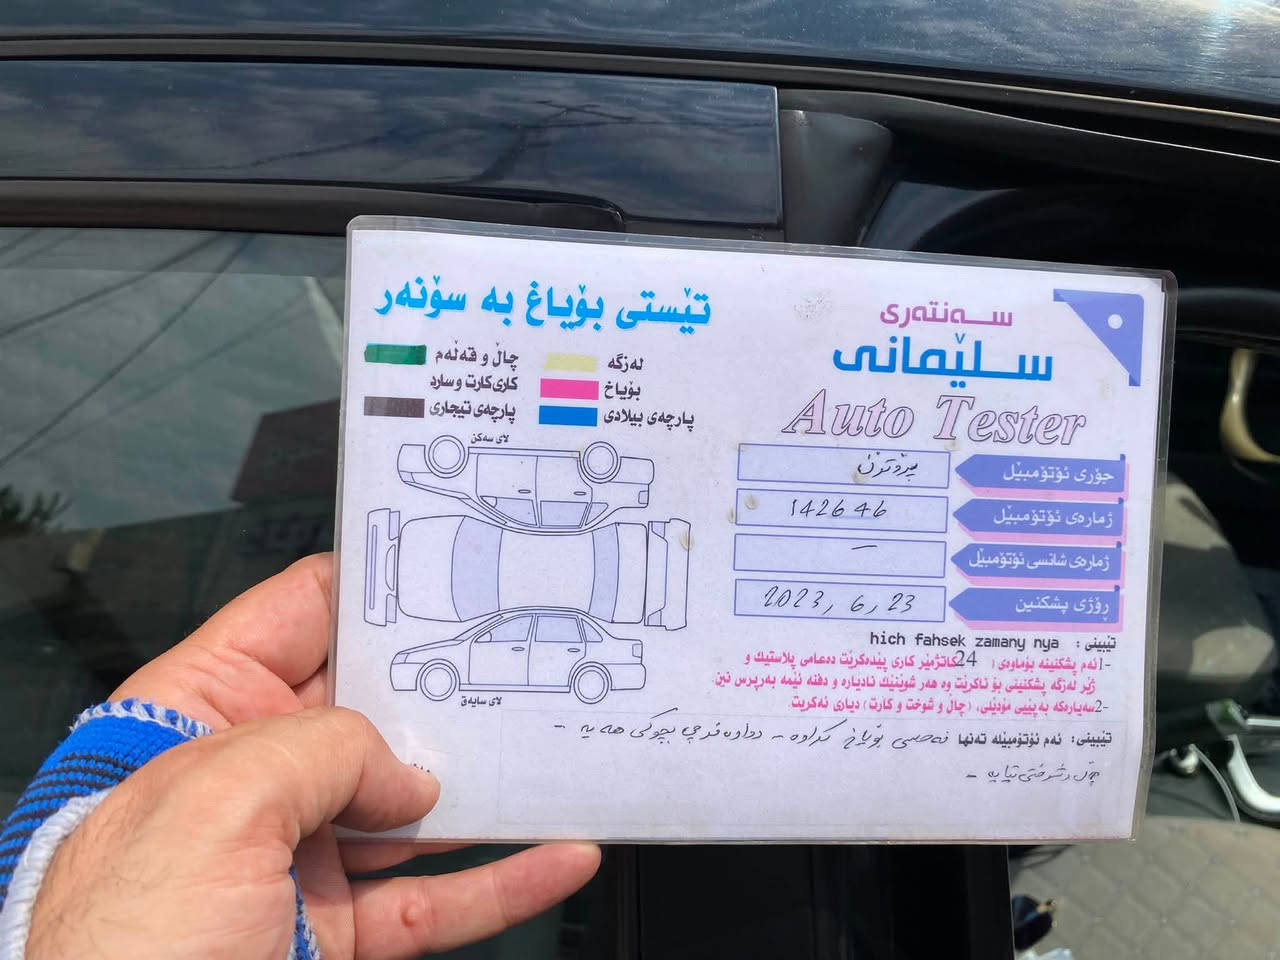 سەنتەری
سلێمانی
Auto Tester
تێستی بۆیاغ بە سۆنەر
لەزگە
چاڵ و قەڵەم
بۆیاخ
کاری کارت و سارد
پارچەی بیلادی
پارچەی تیجاری
لای سەکن
لای سایەق
جۆری ئۆتۆمبێل
ژمارەی ئۆتۆمبێل 142646
ژمارەی شانسی ئۆتۆمبێل –
رۆژی پشکنین 2023, 6, 23
تێبینی : hich fahsek zamany nya
1- ئەم پشکنینە بۆماوەی 24 کاتژمێر کاری پێدەکرێت دەعامی پلاستیك و
ژێر لەزگە پشکنینی بۆ ناکرێت وە هەر شوێنێك نادیارە و دفنە ئێمە بەرپرس نین
2- سەیارەکە بەپێیی مۆدێلی، (چاڵ و شوخت و کارت) دیاری ئەکرێت.
تێبینی: ئەم ئۆتۆمبێلە تەنها فەحسی بۆیاخ کراوە - بچوکی هەیە -